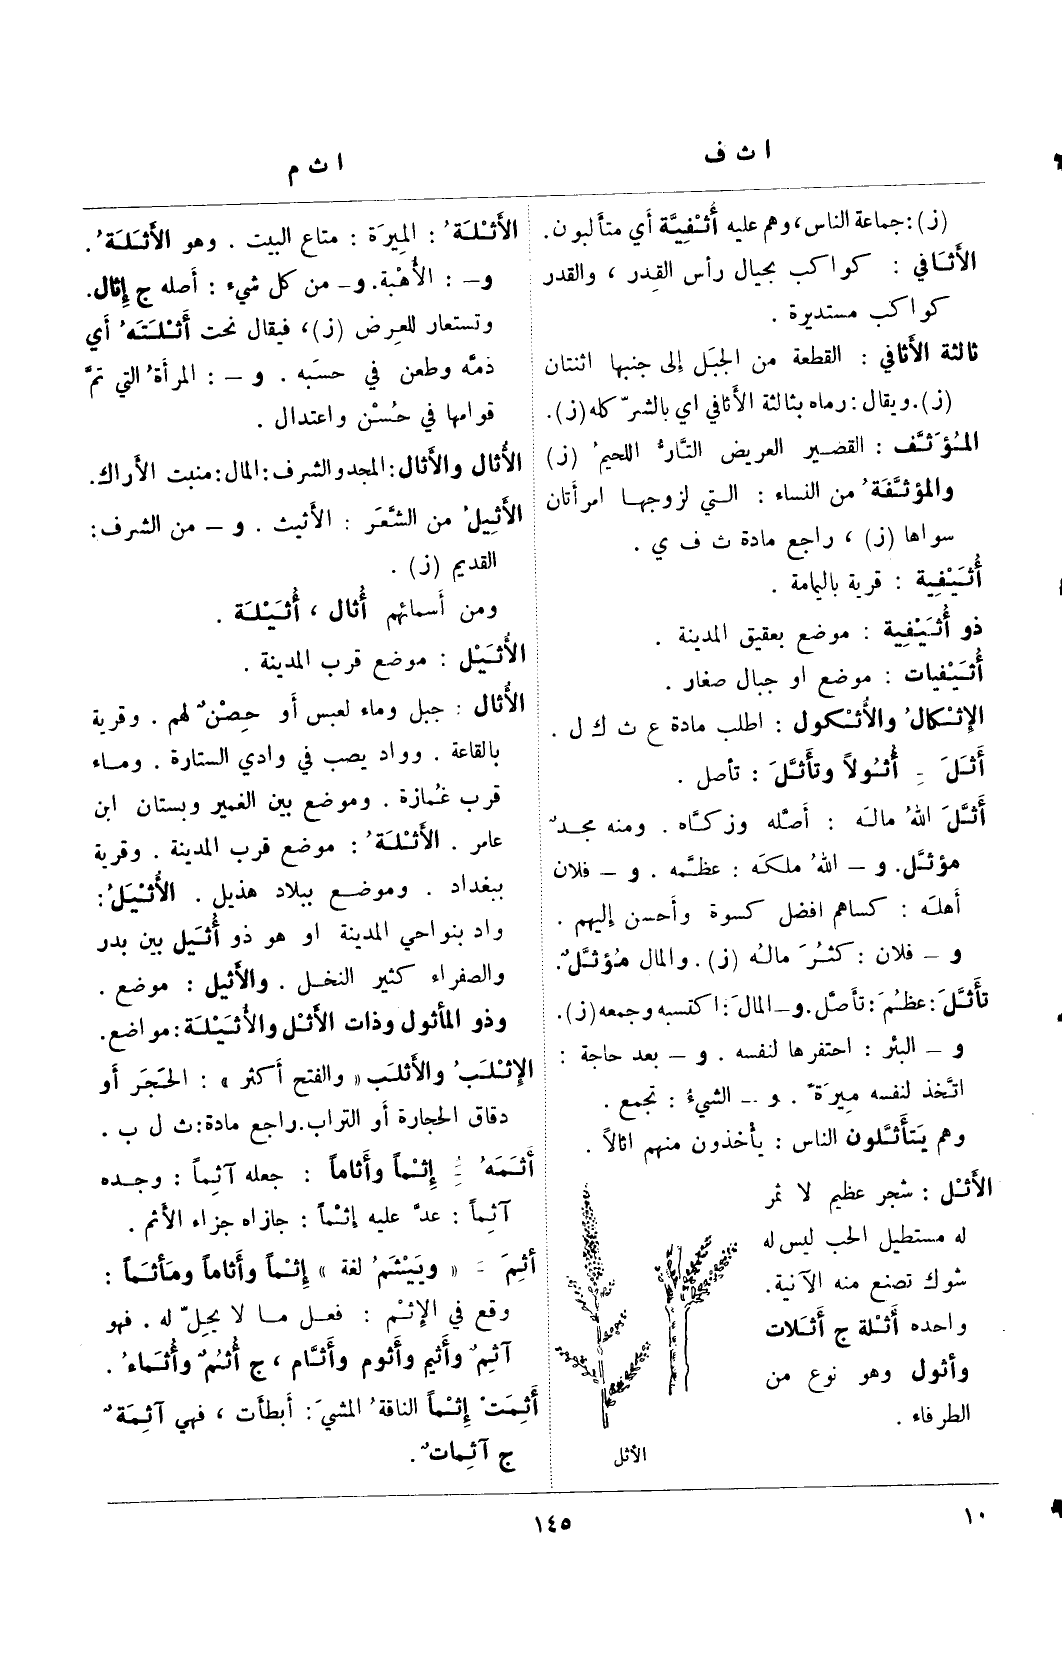 ا ث ف
ا ث م
(ز): جماعة الناس، وهم عليه أُثْفِيَّة أي متألبون.
الأَثَافي : كواكب بحيال رأس القِدر ، والقدر
كواكب مستديرة .
ثالثة الأثافي : القطعة من الجبَل إلى جنبها اثنتان
(ز). ويقال: رماه بثالثة الأثافي اي بالشرّ كله (ز).
المُؤَثَّف : القصير العريض التَّارُّ اللحيمُ (ز)
والمؤثَّفَةُ من النساء : التي لزوجها امرأتان
سواها (ز) ، راجع مادة ث ف ي .
أُثَيْفِية : قرية باليمامة .
ذو أُثَيْفِية : موضع بعقيق المدينة .
أُثَيْفِيات : موضع او جبال صغار .
الإِثْكالُ والأُثْكول : اطلب مادة ع ث ك ل .
أَثَلَ ـِ أُثُولاً وتأَثَّلَ : تأصل .
أَثَّلَ اللهُ مالَه : أصّله وزكّاه . ومنه مجدٌ
مؤثَّل. و – اللهُ ملكَه : عظّمه . و – فلان
أهلَه : كساهم افضل كسوة وأحسن إليهم .
و – فلان : كثُرَ مالُه (ز). والمال مُؤثَّلٌ.
تأَثَّلَ: عظُمَ: تأصّل. و– المالَ: اكتسبه وجمعه (ز).
و – البئر : احتفرها لنفسه . و – بعد حاجة :
اتَّخذ لنفسه مِيرَةً . و – الشيءُ : تجمع .
وهم يَتأَثَّلون الناس : يأخذون منهم اثالاً .
الأَثْل : شجر عظيم لا ثمر
له مستطيل الحب ليس له
شوك تصنع منه الآنية.
واحده أَثْلة ج أَثَلات
وأثول وهو نوع من
الطرفاء .
الأثل
الأَثْلَةُ : المِيرَة : متاع البيت . وهو الأَثَلَةُ.
و– : الأُهْبة. و– من كل شيء : أصله ج إِثال.
وتستعار للعِرض (ز)، فيقال نحت أَثْلَتَهُ أي
ذمّه وطعن في حسَبه . و – : المرأةُ التي تمَّ
قوامها في حُسْن واعتدال .
الأُثال والأَثال: المجد والشرف: المال: منبت الأراك.
الأَثِيلُ من الشَّعَر : الأثيث . و – من الشرف:
القديم (ز) .
ومن أسمائهم أُثال ، أُثَيْلَة .
الأُثَيْل : موضع قرب المدينة .
الأُثال : جبل وماء لعبس أو حِصْنٌ لهم . وقرية
بالقاعة . وواد يصب في وادي الستارة . وماء
قرب غُمازة . وموضع بين الغمير وبستان ابن
عامر . الأَثْلَةُ : موضع قرب المدينة . وقرية
ببغداد . وموضع ببلاد هذيل . الأُثَيْلُ:
واد بنواحي المدينة او هو ذو أُثَيل بين بدر
والصفراء كثير النخل . والأَثيل : موضع .
وذو المأثول وذات الأَثْل والأُثَيْلَة: مواضع.
الإِثْلَبُ والأَثلَب « والفتح أكثر » : الحَجَر أو
دقاق الحجارة أو التراب. راجع مادة: ث ل ب .
أَثَمَهُ ـُِ إِثْماً وأَثاماً : جعله آثِماً : وجده
آثِماً : عدَّ عليه إثْماً : جازاه جزاء الأثم .
أَثِمَ ـَ « ويَيْثَمُ لغة » إِثْماً وأَثاماً ومَأثَماً :
وقع في الإِثْم : فعل ما لا يحِلّ له . فهو
آثِمٌ وأَثيم وأَثوم وأَثّام ، ج أُثُمٌ وأُثَماءُ .
أَثِمَتْ إِثْماً الناقةُ المشيَ : أبطأت ، فهي آثِمَةٌ
ج آثِماتٌ.
١٤٥
١٠